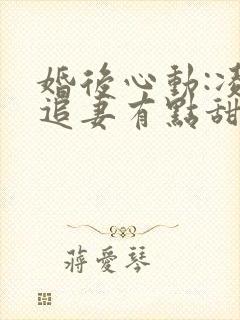 婚後心動:凌
追妻有點甜
蔣愛琴